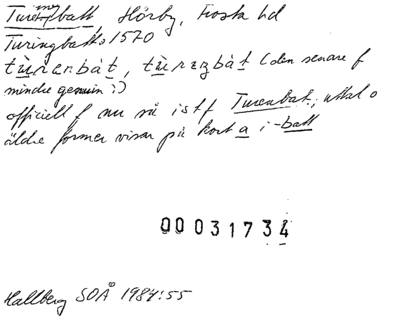 Turemaball, Hörby, Frosta hd
Turingballs 1570
tùrɛnbát, tùrɛŋbát (den senare f
mindre genuin :)
officiell f nu så istf Turabat; uttal o
äldre former visar på kort a i -ball
00031734
Hallberg SOÅ 1984:55